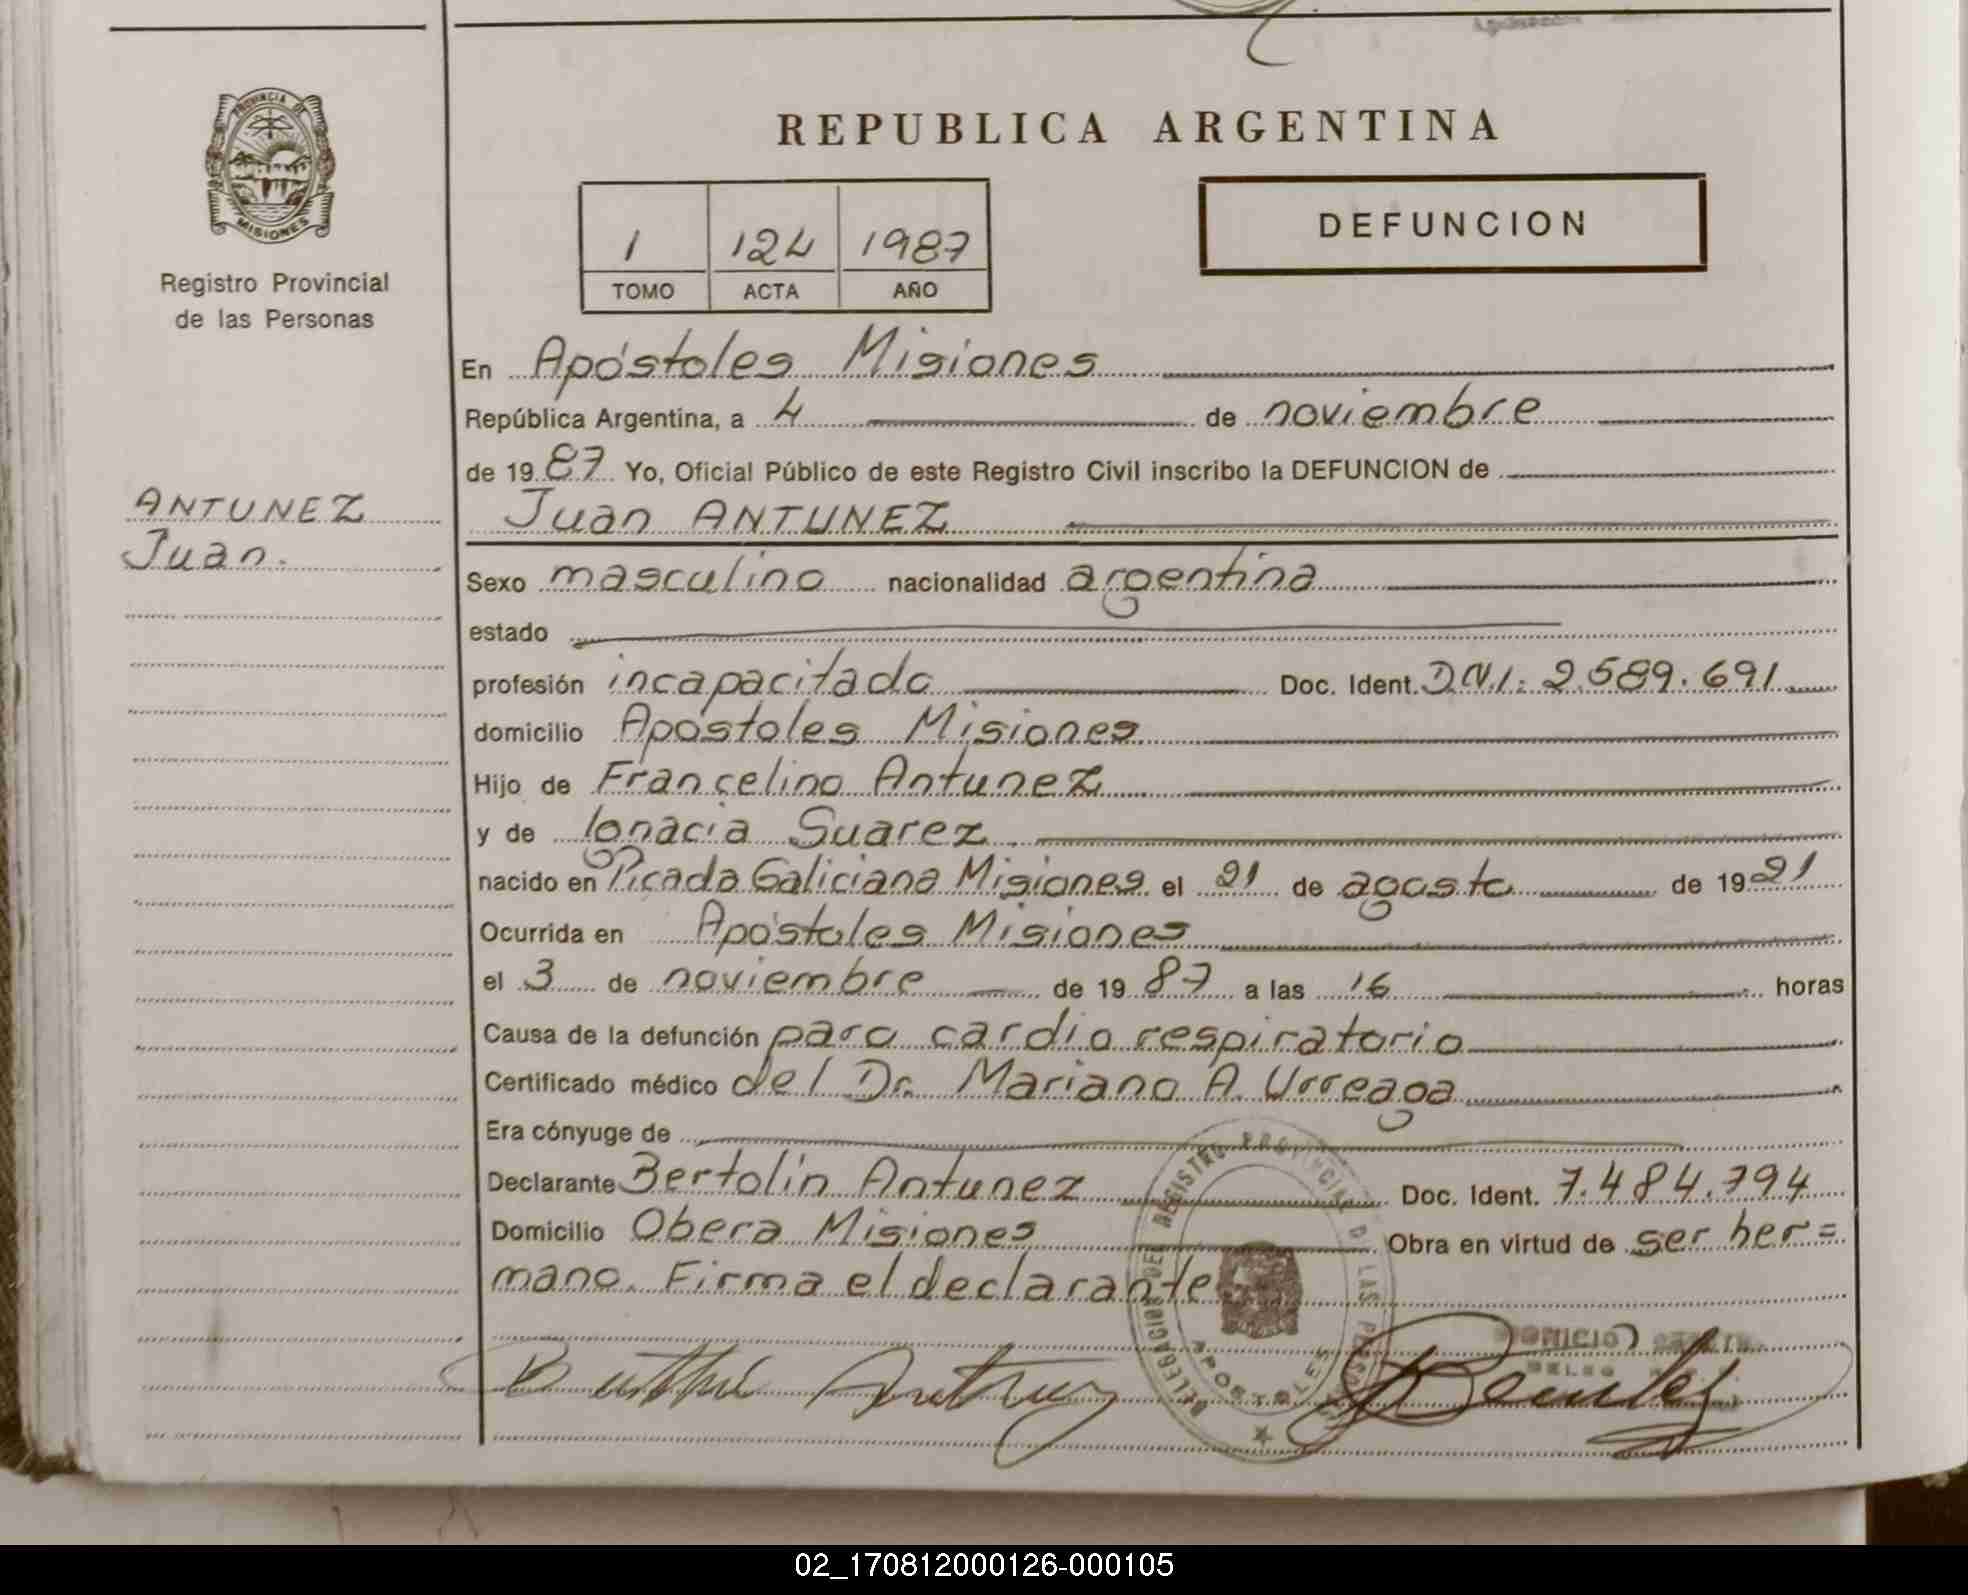 REPUBLICA ARGENTINA
PROVINCIA DE MISIONES
Registro Provincial
de las Personas
1 124 1987
TOMO ACTA AÑO
DEFUNCION
En Apóstoles Misiones
República Argentina, a 4 de noviembre
de 1987 Yo, Oficial Público de este Registro Civil inscribo la DEFUNCION de
ANTUNEZ
Juan.
Juan ANTUNEZ
Sexo masculino nacionalidad argentina
estado
profesión incapacitado Doc. Ident. D.N.I: 2.589.691
domicilio Apóstoles Misiones
Hijo de Francelino Antunez
y de Ignacia Suarez
nacido en Picada Galiciana Misiones el 21 de agosto de 1921
Ocurrida en Apóstoles Misiones
el 3 de noviembre de 1987 a las 16 horas
Causa de la defunción paro cardio respiratorio
Certificado médico del Dr. Mariano A. Urreaga
Era cónyuge de
Declarante Bertolin Antunez Doc. Ident. 7.484.794
Domicilio Obera Misiones Obra en virtud de ser her=
mano. Firma el declarante
DELEGACION DEL REGISTRO PROVINCIAL DE LAS PERSONAS
APOSTOLES
02_170812000126-000105